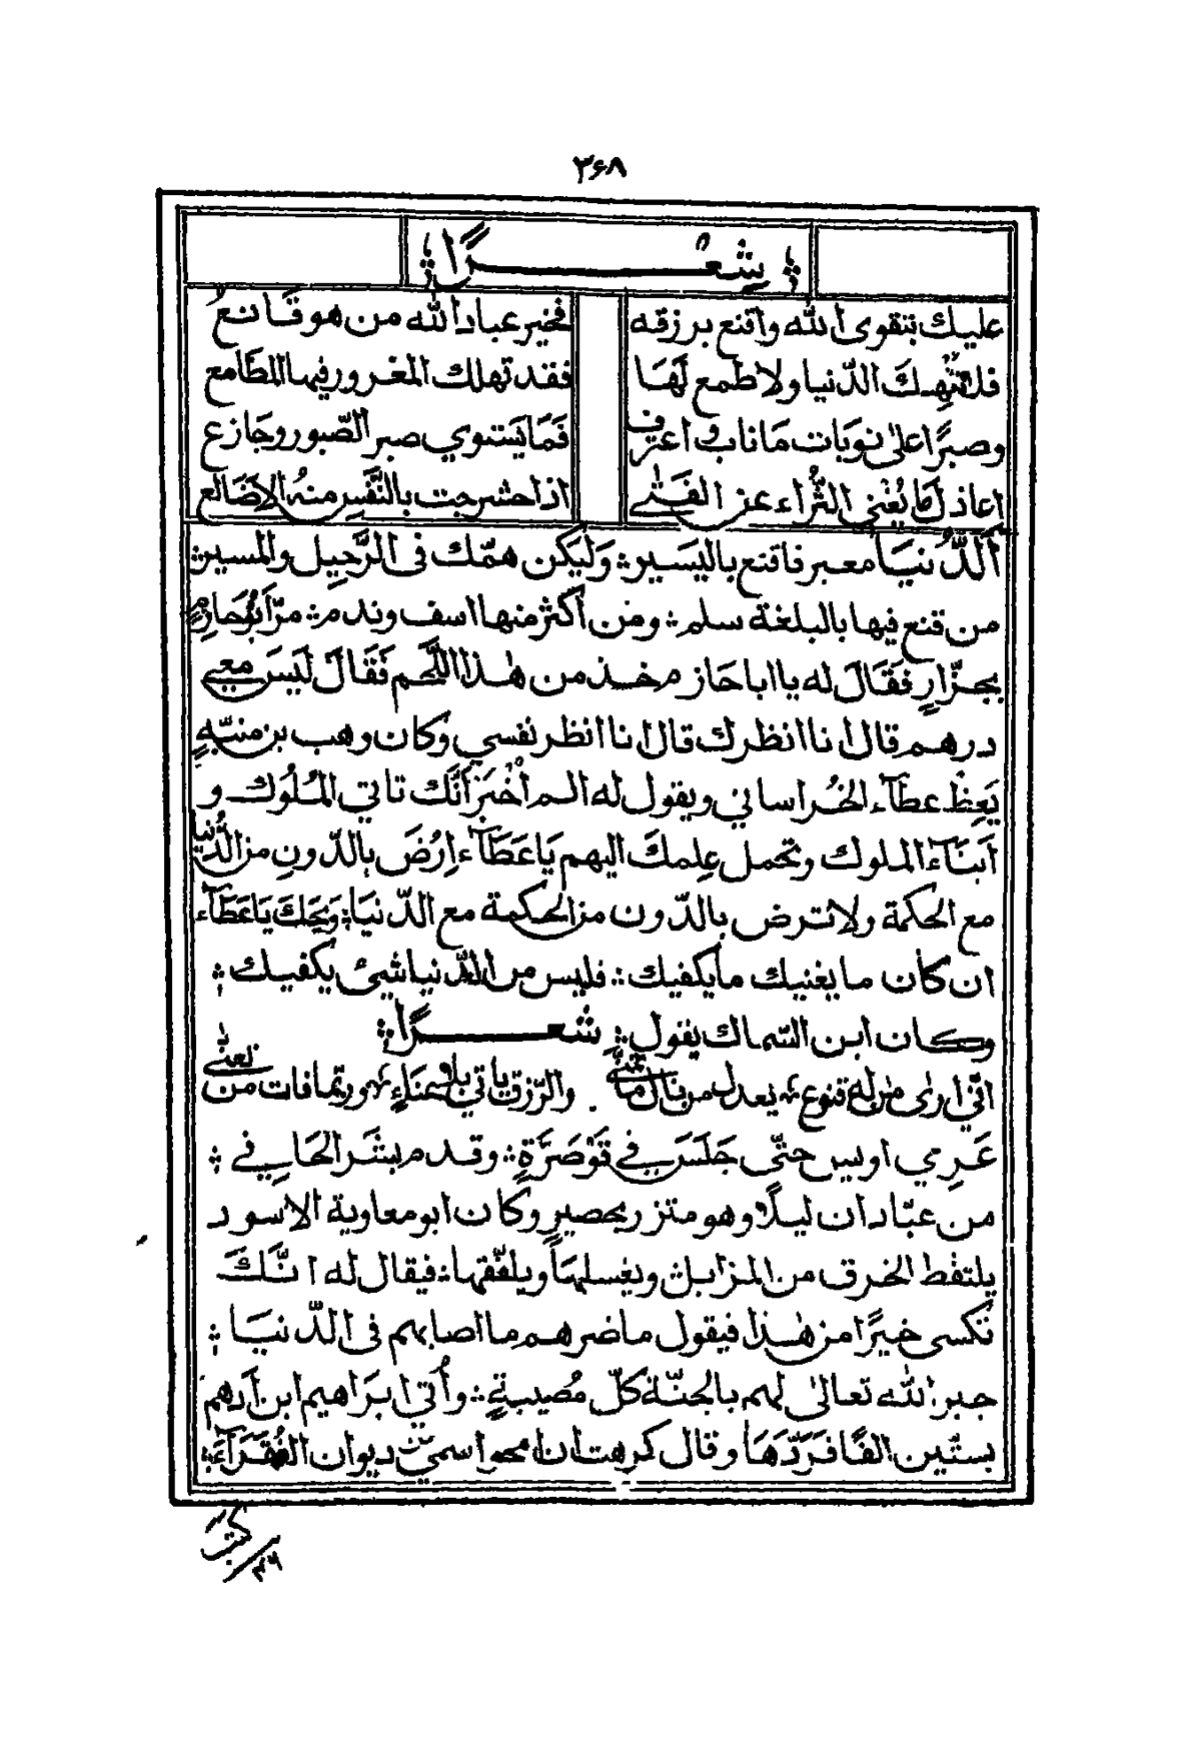 ٣۶٨
شِعْــــرًا
عليك بتقوى الله واقنع برزقه فخير عباد الله من هو قَانعُ
فلا تُلْهِكَ الدّنيا ولا طمع لَهَا فقد تهلك المغرور فيها المطَامع
وصبرًا على نوبَات مَا ناب واعترف فَمَا يَستوي صبر الصّبور وجَازع
اعاذل مَا يُغْني الثَّراء عن الفَتى اذا حشرجت بالنَّفس منهُ الاضَالع
اَلدُّنيَا معبر فاقنع باليَسير؞ وَليَكن همّك فى الرَّحِيل والمسير؞
من قنع فيها بالبلغة سلم؞ ومَن أكثر منها اسف وندم؞ مرّ اَبُوحَازمٍ
بجزّارٍ فَقَالَ له يا ابا حَازم خذ من هٰذا اللَّحم فَقَالَ لَيسَ معِي
درهم قال انا انظرك قال انا انظر نفسي وكان وهب بن منبّهٍ
يَعِظُ عطآء الخُراساني ويقول له الم أُخْبَر أَنَّك تاتي المُلُوك و
اَبنَآء الملوك وتحمل عِلمكَ اليهم يَا عَطَآء اِرْضَ بالدّونِ من الدُّنيا
مع الحكمة ولا ترض بالدّون من الحكمة مع الدّنيَا؞ وَيحَكَ يَا عَطَآء
ان كان ما يغنيك ما يكفيك؞ فليس من الدّنيا شيئ يكفيك؞
وكان ابن السّماك يقول؞ شعــــرًا؞
انّي ارى من له قنوع؞ يعدل من نال ما تمنّى . والرّزق ياتي بلا عَنَاءٍ؞ وربّما فات من تعنّى
عَرِي اويس حتّى جَلَسَ في قَوْصَرَّةٍ؞ وقدم بشر الحَافي؞
من عبّادان ليلًا وهو متزر بحصيرٍ وكان ابو معاوية الاسود
يلتقط الخرق من المزابل؞ ويغسلهَا ويلفّقها؞ فيقال له انَّكَ
تُكسى خيرًا من هٰذا فيقول ما ضرهم ما اصابهم فى الدّنيَا؞
جبر الله تعالىٰ لهم بالجنّة كلّ مُصيبةٍ؞ وأُتي ابرَاهيم ابن اَدهم
بستّين الفًا فَرَدَّهَا وقال كرهت ان امحو اسمي من ديوان الفُقَرَآء؞